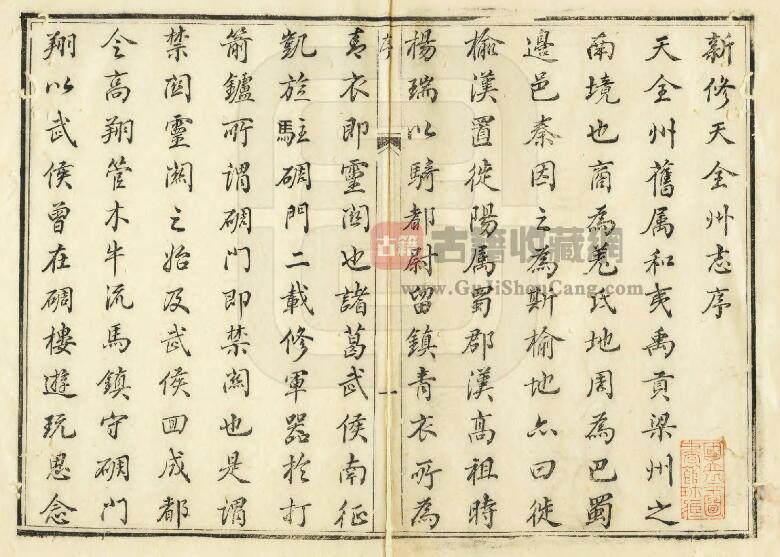 新修天全州志序
天全州舊属和夷禹貢梁州之
南境也商為羌氏地周為巴蜀
邊邑秦因之為斯榆地亦曰徙
榆漢置徙陽属蜀郡漢高祖時
楊瑞以騎都尉留鎮青衣所為
序
一
青衣即靈関也諸葛武侯南征
凱旋駐碉門二載修軍器於打
箭鑪所謂碉門即禁関也是謂
禁関靈関之始及武侯回成都
令高翔管木牛流馬鎮守碉門
翔以武侯曾在碉樓遊玩思念
古籍
古籍收藏網
www.GuJiShouCang.com